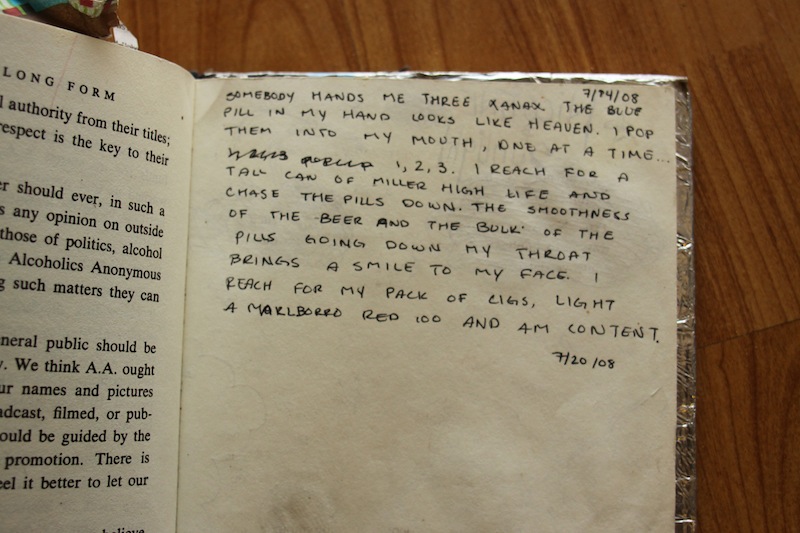 LONG FORM
l authority from their titles;
respect is the key to their
er should ever, in such a
s any opinion on outside
those of politics, alcohol
Alcoholics Anonymous
g such matters they can
neral public should be
y. We think A.A. ought
ur names and pictures
adcast, filmed, or pub-
ould be guided by the
promotion. There is
eel it better to let our
believe
7/24/08
SOMEBODY HANDS ME THREE XANAX. THE BLUE
PILL IN MY HAND LOOKS LIKE HEAVEN. I POP
THEM INTO MY MOUTH, ONE AT A TIME...
1, 2, 3. I REACH FOR A
TALL CAN OF MILLER HIGH LIFE AND
CHASE THE PILLS DOWN. THE SMOOTHNESS
OF THE BEER AND THE BULK OF THE
PILLS GOING DOWN MY THROAT
BRINGS A SMILE TO MY FACE. I
REACH FOR MY PACK OF CIGS, LIGHT
A MARLBORRO RED 100 AND AM CONTENT.
7/20/08